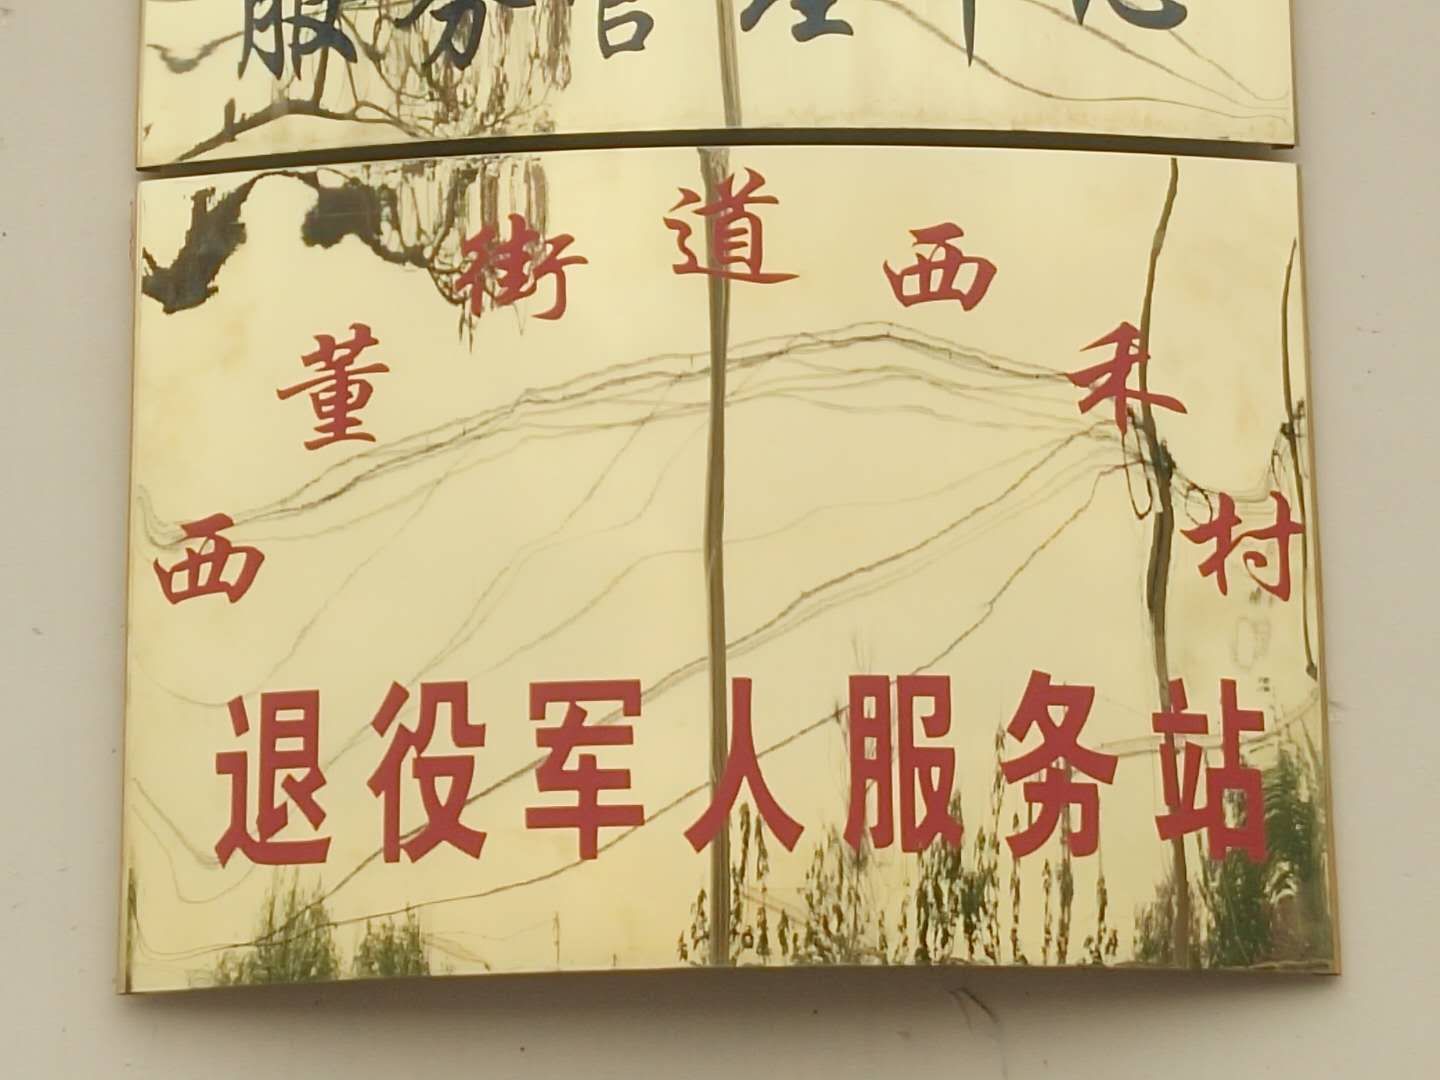 服务管理中心
西董街道西禾村
退役军人服务站